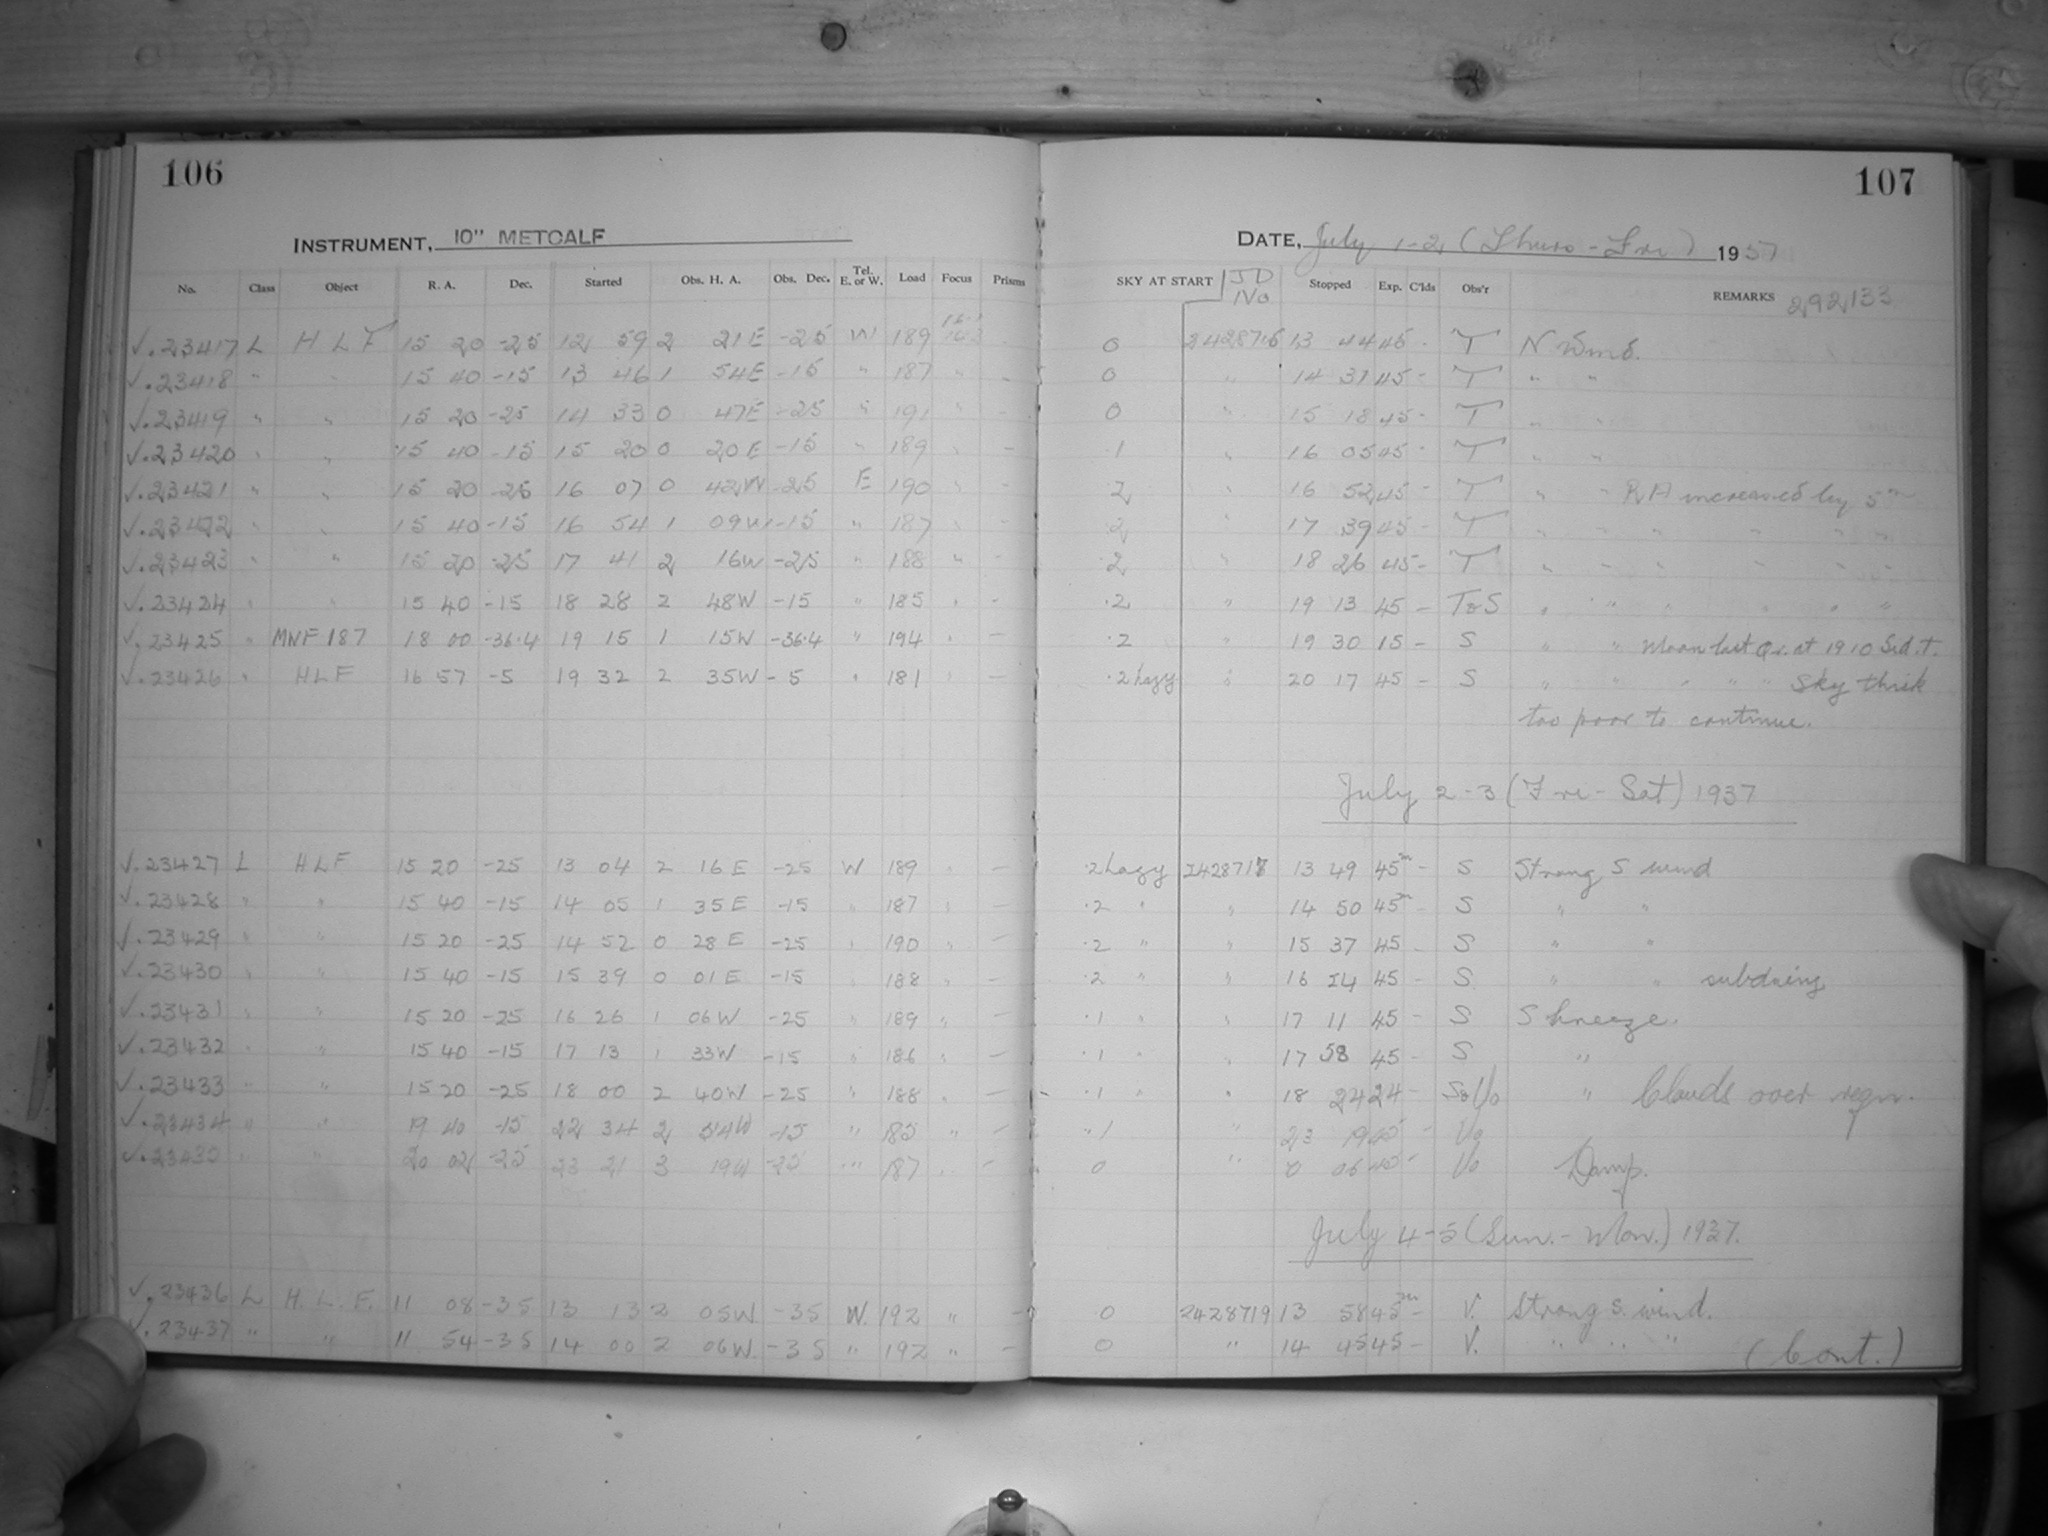 106
INSTRUMENT, 10" METCALF
No. Class Object R. A. Dec. Started Obs. H. A. Obs. Dec. Tel. E. or W. Load Focus Prisms
√.23417 L HLF 15 20 -25 12 59 2 21E -25 W 189
√.23418 " " 15 40 -15 13 46 1 54E -15 " 187 " -
√.23419 " " 15 20 -25 14 33 0 47E -25 " 191 " -
√.23420 " " 15 40 -15 15 20 0 20E -15 " 189 " -
√.23421 " " 15 20 -25 16 07 0 42W -25 E 190 " -
√.23422 " " 15 40 -15 16 54 1 09W -15 " 187 " -
√.23423 " " 15 20 -25 17 41 2 16W -25 " 188 " -
√.23424 " " 15 40 -15 18 28 2 48W -15 " 185 " -
√.23425 " MNF 187 18 00 -36.4 19 15 1 15W -36.4 " 194 " -
√.23426 " HLF 16 57 -5 19 32 2 35W -5 " 181 " -
√.23427 L HLF 15 20 -25 13 04 2 16E -25 W 189 " -
√.23428 " " 15 40 -15 14 05 1 35E -15 " 187 " -
√.23429 " " 15 20 -25 14 52 0 28E -25 " 190 " -
√.23430 " " 15 40 -15 15 39 0 01E -15 " 188 " -
√.23431 " " 15 20 -25 16 26 1 06W -25 " 189 " -
√.23432 " " 15 40 -15 17 13 1 33W -15 " 186 " -
√.23433 " " 15 20 -25 18 00 2 40W -25 " 188 " -
√.23434 " " 19 40 -15 22 34 2 54W -15 " 185 " -
√.23435 " " 20 02 -25 23 21 3 19W -25 " 187 " -
√.23436 L H.L.F. 11 08 -35 13 13 2 05W -35 W. 192 " -
√.23437 " " 11 54 -35 14 00 2 06W. -35 " 192 " -
107
DATE, July 1-2 (Thurs - Fri) 1937
SKY AT START JD No Stopped Exp. C'lds Obs'r REMARKS 292,133
0 2428716 13 44 45 - T N Wind.
0 " 14 31 45 - T " "
0 " 15 18 45 - T " "
.1 " 16 05 45 - T " "
.2 " 16 52 45 - T " " RA increased by 5m
.2 " 17 39 45 - T " " " " "
.2 " 18 26 45 - T " " " " "
.2 " 19 13 45 - T&S " " " " "
.2 " 19 30 15 - S " " Moon last Qr. at 19 10 Sid. T.
.2 hazy " 20 17 45 - S " " " " " Sky thick
too poor to continue.
July 2-3 (Fri - Sat) 1937
.2 hazy 2428717 13 49 45m - S Strong S wind
.2 " " 14 50 45m - S " "
.2 " " 15 37 45 - S " "
.2 " " 16 24 45 - S " " subduing
.1 " " 17 11 45 - S S breeze.
.1 " " 17 58 45 - S "
.1 " " 18 24 24 - S&Vo " Clouds over regn.
.1 " 23 19 45 - Vo
0 " 0 06 45 - Vo Damp.
July 4-5 (Sun. - Mon.) 1937.
0 2428719 13 58 45m - V. Strong S. wind.
0 " 14 45 45 - V. " " "
(Cont.)